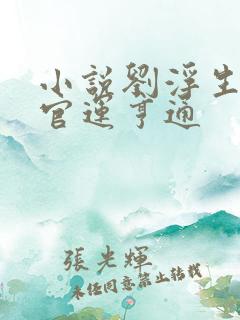 小說劉浮生
官運亨通
張光輝
未經同意禁止轉載